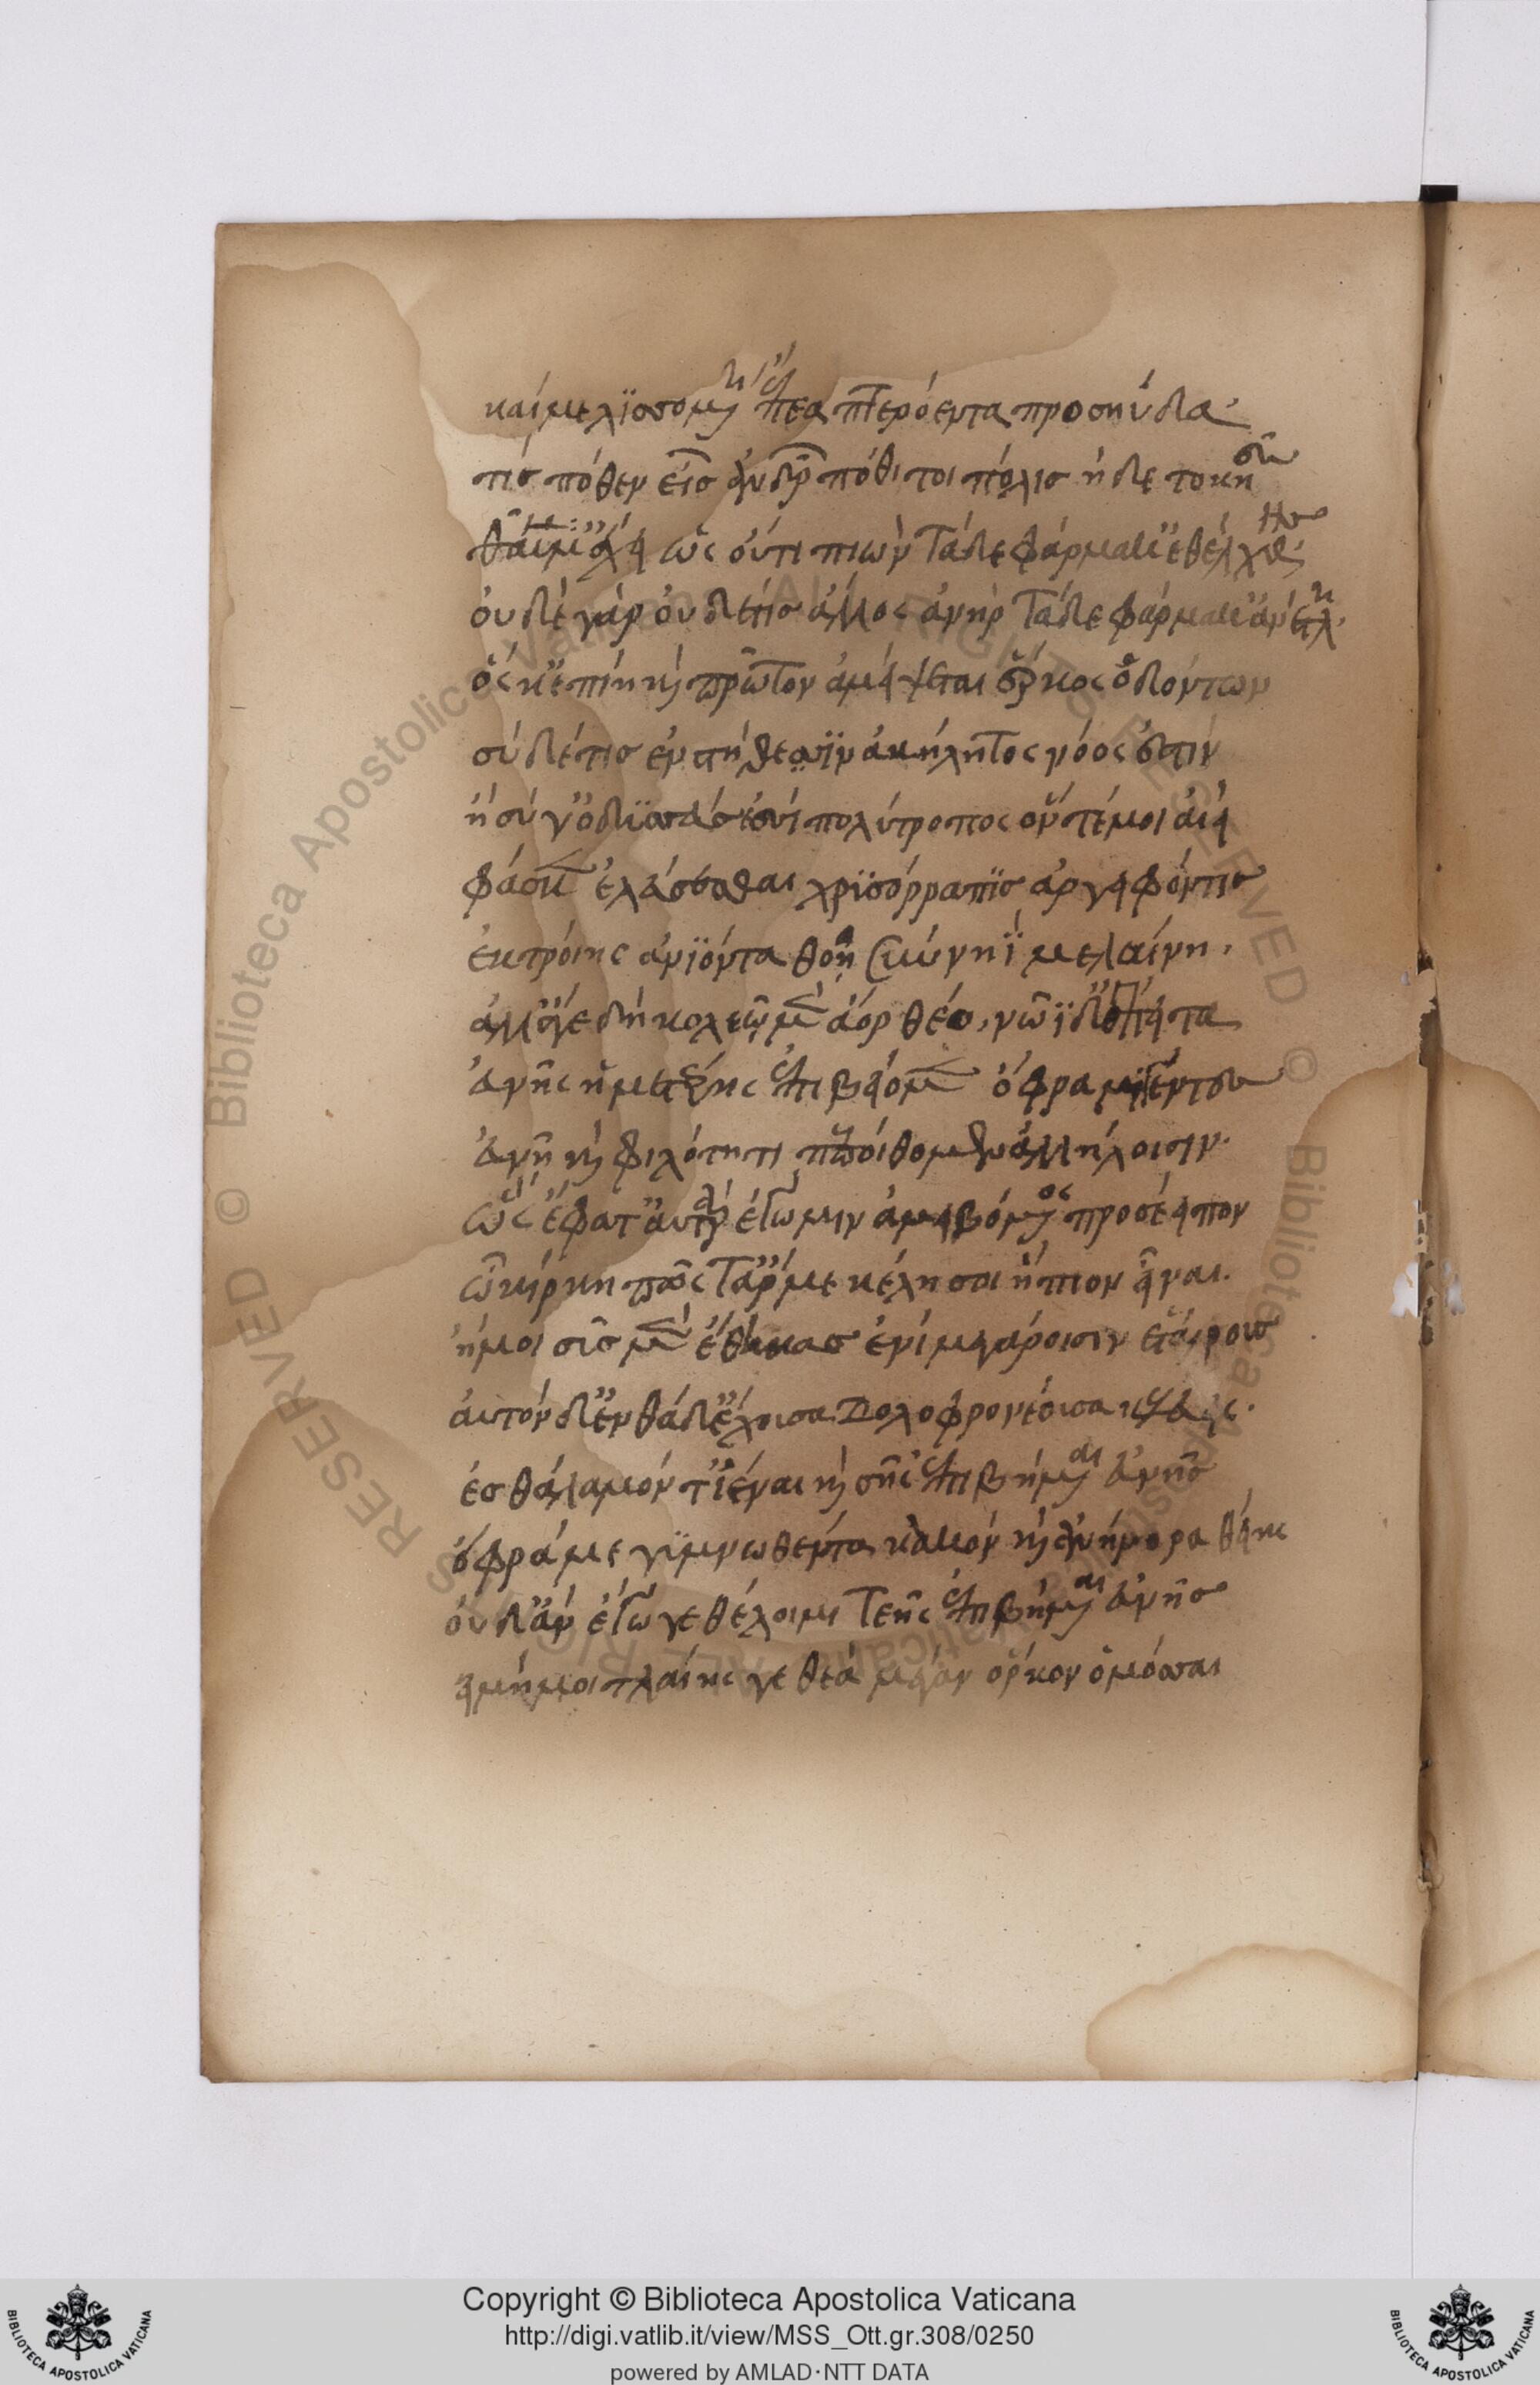 καί μελϊσσομένη ἔπεα πτερόεντα προσηύδα·
τίς πόθεν εἶσ ἀνδρῶν πόθι τοι πόλισ ἠδε τοκῆ
θαῦμά μ' ἔχει ὡς ούτι πιὼν τάδε φάρμακ' ἐθέλχθης·
ὀυδέ γὰρ ὀυδέτισ ἄλλος ἀνὴρ τάδε φάρμακ' ἀνέτλη·
ὅς κε πίη καὶ πρῶτον ἀμείψεται ἕρκος ὀδόντων
σύ δέ τισ ἐν στήθεσϊν ἀκήλητος νόος ἐστιν
ἠ σύ γ' ὀδϋσσεύς ἐσσί πολύτροπος ὅν τέ μοι ἀιεί
φάσκεν ἐλεύσεσθαι χρϋσόρραπϊσ ἀργειφόντησ
ἐκ τρόιης ἀνϊόντα θοῇ σὺν νηῒ μελαίνῃ.
ἀλλ' ἄγε δὴ κολεῷ μὲν ἄορ θέο, νῶϊ δ' ἔπειτα
ἐυνῆς ἡμετέρης ἐπιβείομεν ὄφρα μιγέντε
ἐυνῇ καὶ φιλότητι πεποίθομεν ἀλλήλοισιν·
ὥς ἔφατ' ἀυτὰρ ἐγώ μιν ἀμειβόμενος προσέειπον
ὦ κίρκη πῶς γάρ με κέλη σοι ἤπιον εἶναι.
ἥ μοι σῦσ μὲν ἔθηκασ ἐνί μεγάροισιν ἑταίρους
ἀυτόν δ' ἐνθάδ' ἔχουσα δολοφρονέουσα κελεύεις·
ἐσ θάλαμόν τ' ἰέναι καὶ σῆς ἐπιβήμεναι ἐυνῆσ
ὄφρά με γϋμνωθέντα κακόν καὶ ἀνήνορα θείης
ὀυδ' ἄν ἐγώ γε θέλοιμι τεῆς ἐπιβήμεναι ἐυνῆσ
εἰ μή μοι τλαίης γε θεά μέγαν ὅρκον ὀμόσσαι
Copyright © Biblioteca Apostolica Vaticana
http://digi.vatlib.it/view/MSS_Ott.gr.308/0250
powered by AMLAD·NTT DATA